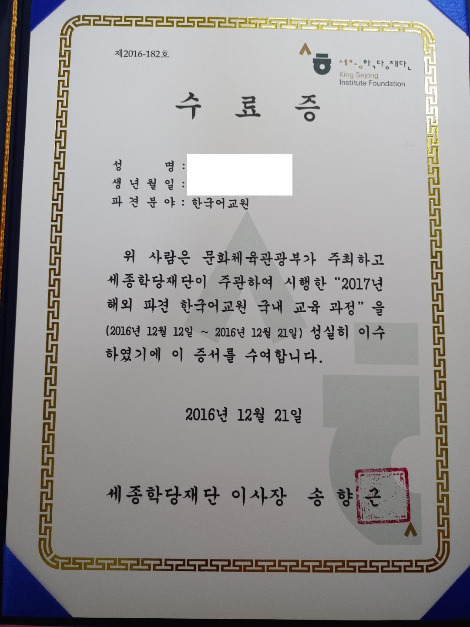 제2016-182호
세종학당재단
King Sejong
Institute Foundation
수 료 증
성 명 :
생 년 월 일 :
파 견 분 야 : 한국어교원
위 사람은 문화체육관광부가 주최하고
세종학당재단이 주관하여 시행한 “2017년
해외 파견 한국어교원 국내 교육 과정” 을
(2016년 12월 12일 ~ 2016년 12월 21일) 성실히 이수
하였기에 이 증서를 수여합니다.
2016년 12월 21일
세종학당재단 이사장 송 향 근